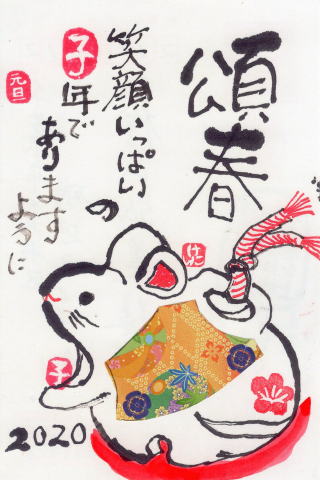 頌春
笑顔いっぱいの
子年で
あります
ように
元旦
子
2020